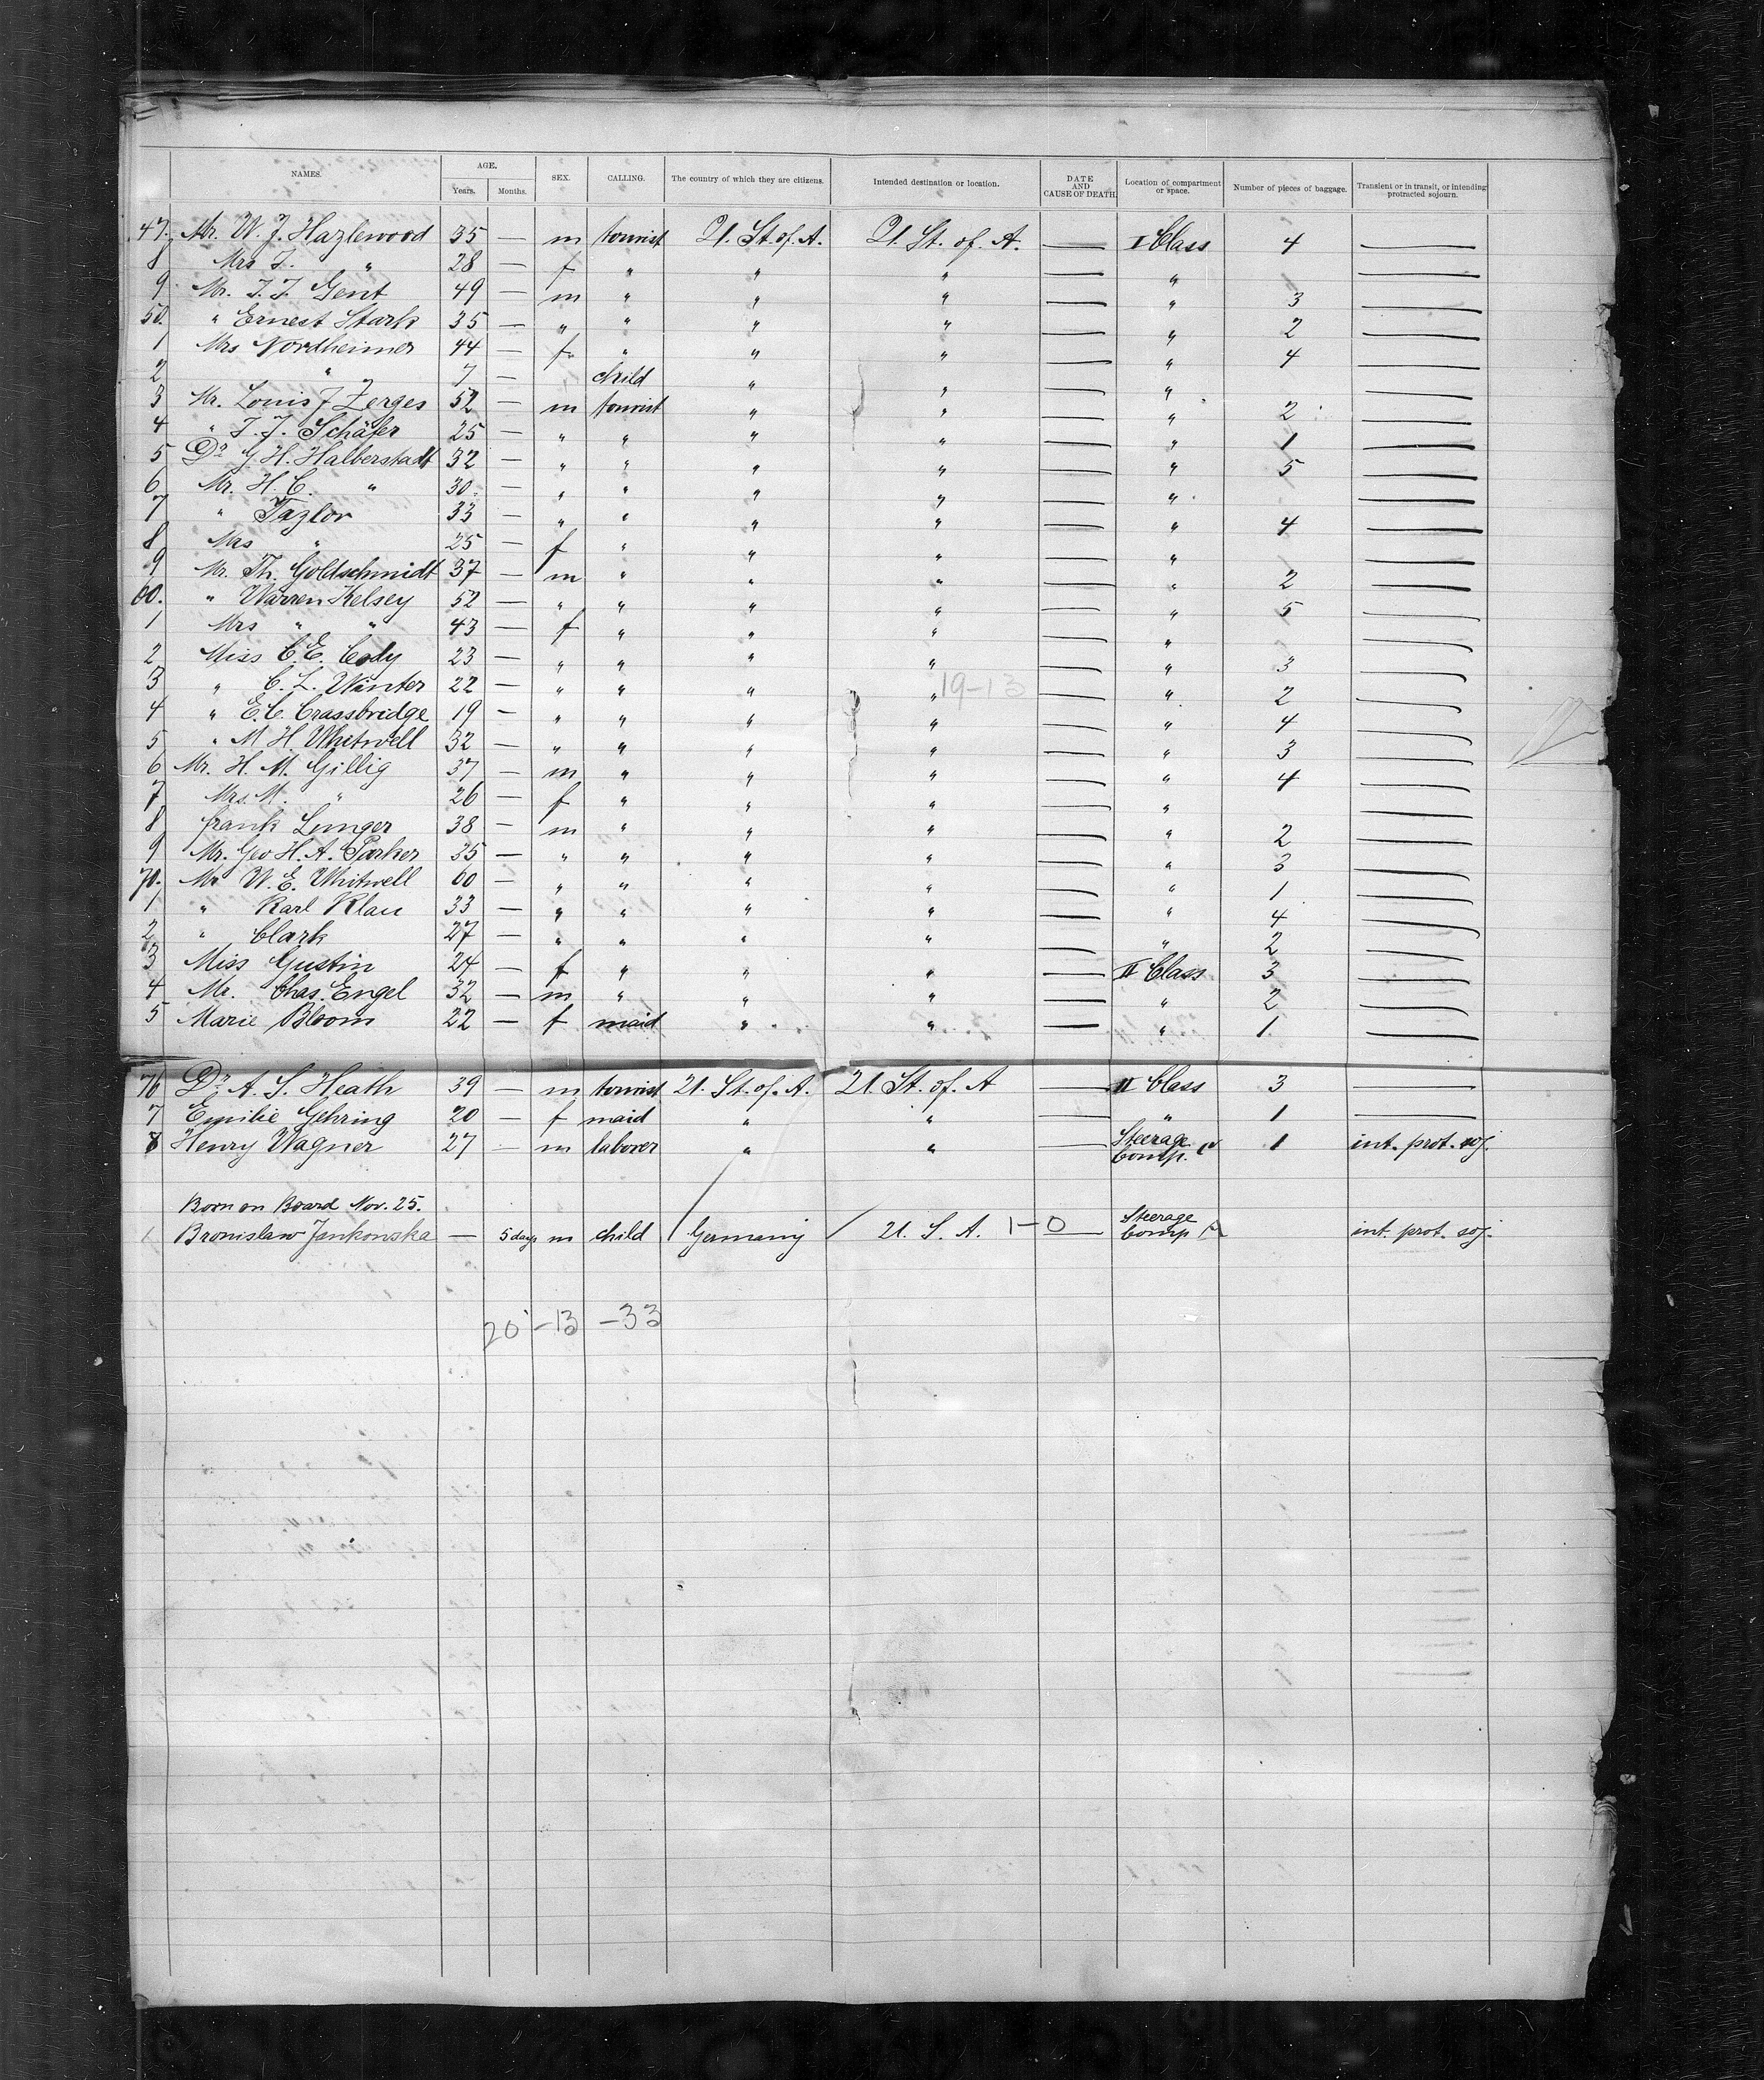 NAMES. AGE. Years. Months. SEX. CALLING. The country of which they are citizens. Intended destination or location. DATE AND CAUSE OF DEATH. Location of compartment or space. Number of pieces of baggage. Transient or in transit, or intending protracted sojourn.
47. Mr. W. J. Hazlewood 35 — m tourist U. St. of. A. U. St. of. A. — I Class 4 —
8 Mrs J. " 28 — f " " " — " —
9 Mr. J. J. Gent 49 — m " " " — " 3 —
50. " Ernest Stark 35 — " " " " — " 2 —
1 Mrs Nordheimer 44 — f " " " — " 4 —
2 " 7 — " child " " — " —
3 Mr. Louis J Zerges 52 — m tourist " " — " 2 —
4 " J. J. Schäfer 25 — " " " " — " 1 —
5 Dr G. H. Halberstadt 32 — " " " " — " 5 —
6 Mr. H. C. " 30 — " " " " — " —
7 " Tazlor 33 — " " " " — " 4 —
8 Mrs " 25 — f " " " — " —
9 Mr. Th. Goldschmidt 37 — m " " " — " 2 —
60. " Warren Kelsey 52 — " " " " — " 5 —
1 Mrs " " 43 — f " " " — " —
2 Miss C. E. Cody 23 — " " " " — " 3 —
3 " C. L. Winter 22 — " " " " 19-13 — " 2 —
4 " E. C. Crassbridge 19 — " " " " — " 4 —
5 " M. H. Whitwell 32 — " " " " — " 3 —
6 Mr. H. M. Gillig 37 — m " " " — " 4 —
7 Mrs. M. " 26 — f " " " — " —
8 frank Lunger 38 — m " " " — " 2 —
9 Mr. Geo H. A. Parker 35 — " " " " — " 3 —
70. Mr W. E. Whitwell 60 — " " " " — " 1 —
1 " Karl Klau 33 — " " " " — " 4 —
2 " Clark 27 — " " " " — " 2 —
3 Miss Gustin 24 — f " " " — II Class 3 —
4 Mr. Chas. Engel 32 — m " " " — " 2 —
5 Marie Bloom 22 — f maid " " — " 1. —
76 Dr A. S. Heath 39 — m tourist U. St. of. A. U. St. of. A — II Class 3 —
7 Emilie Gehring 20 — f maid " " — " 1 —
8 Henry Wagner 27 — m laborer " " — Steerage Comp. 1 int. prot. soj.
Born on Board Nov. 25.
1 Bronislaw Jankonska — 5 days m child Germany U. S. A. 1-0 — Steerage Comp int. prot. soj.
20 -13 -33